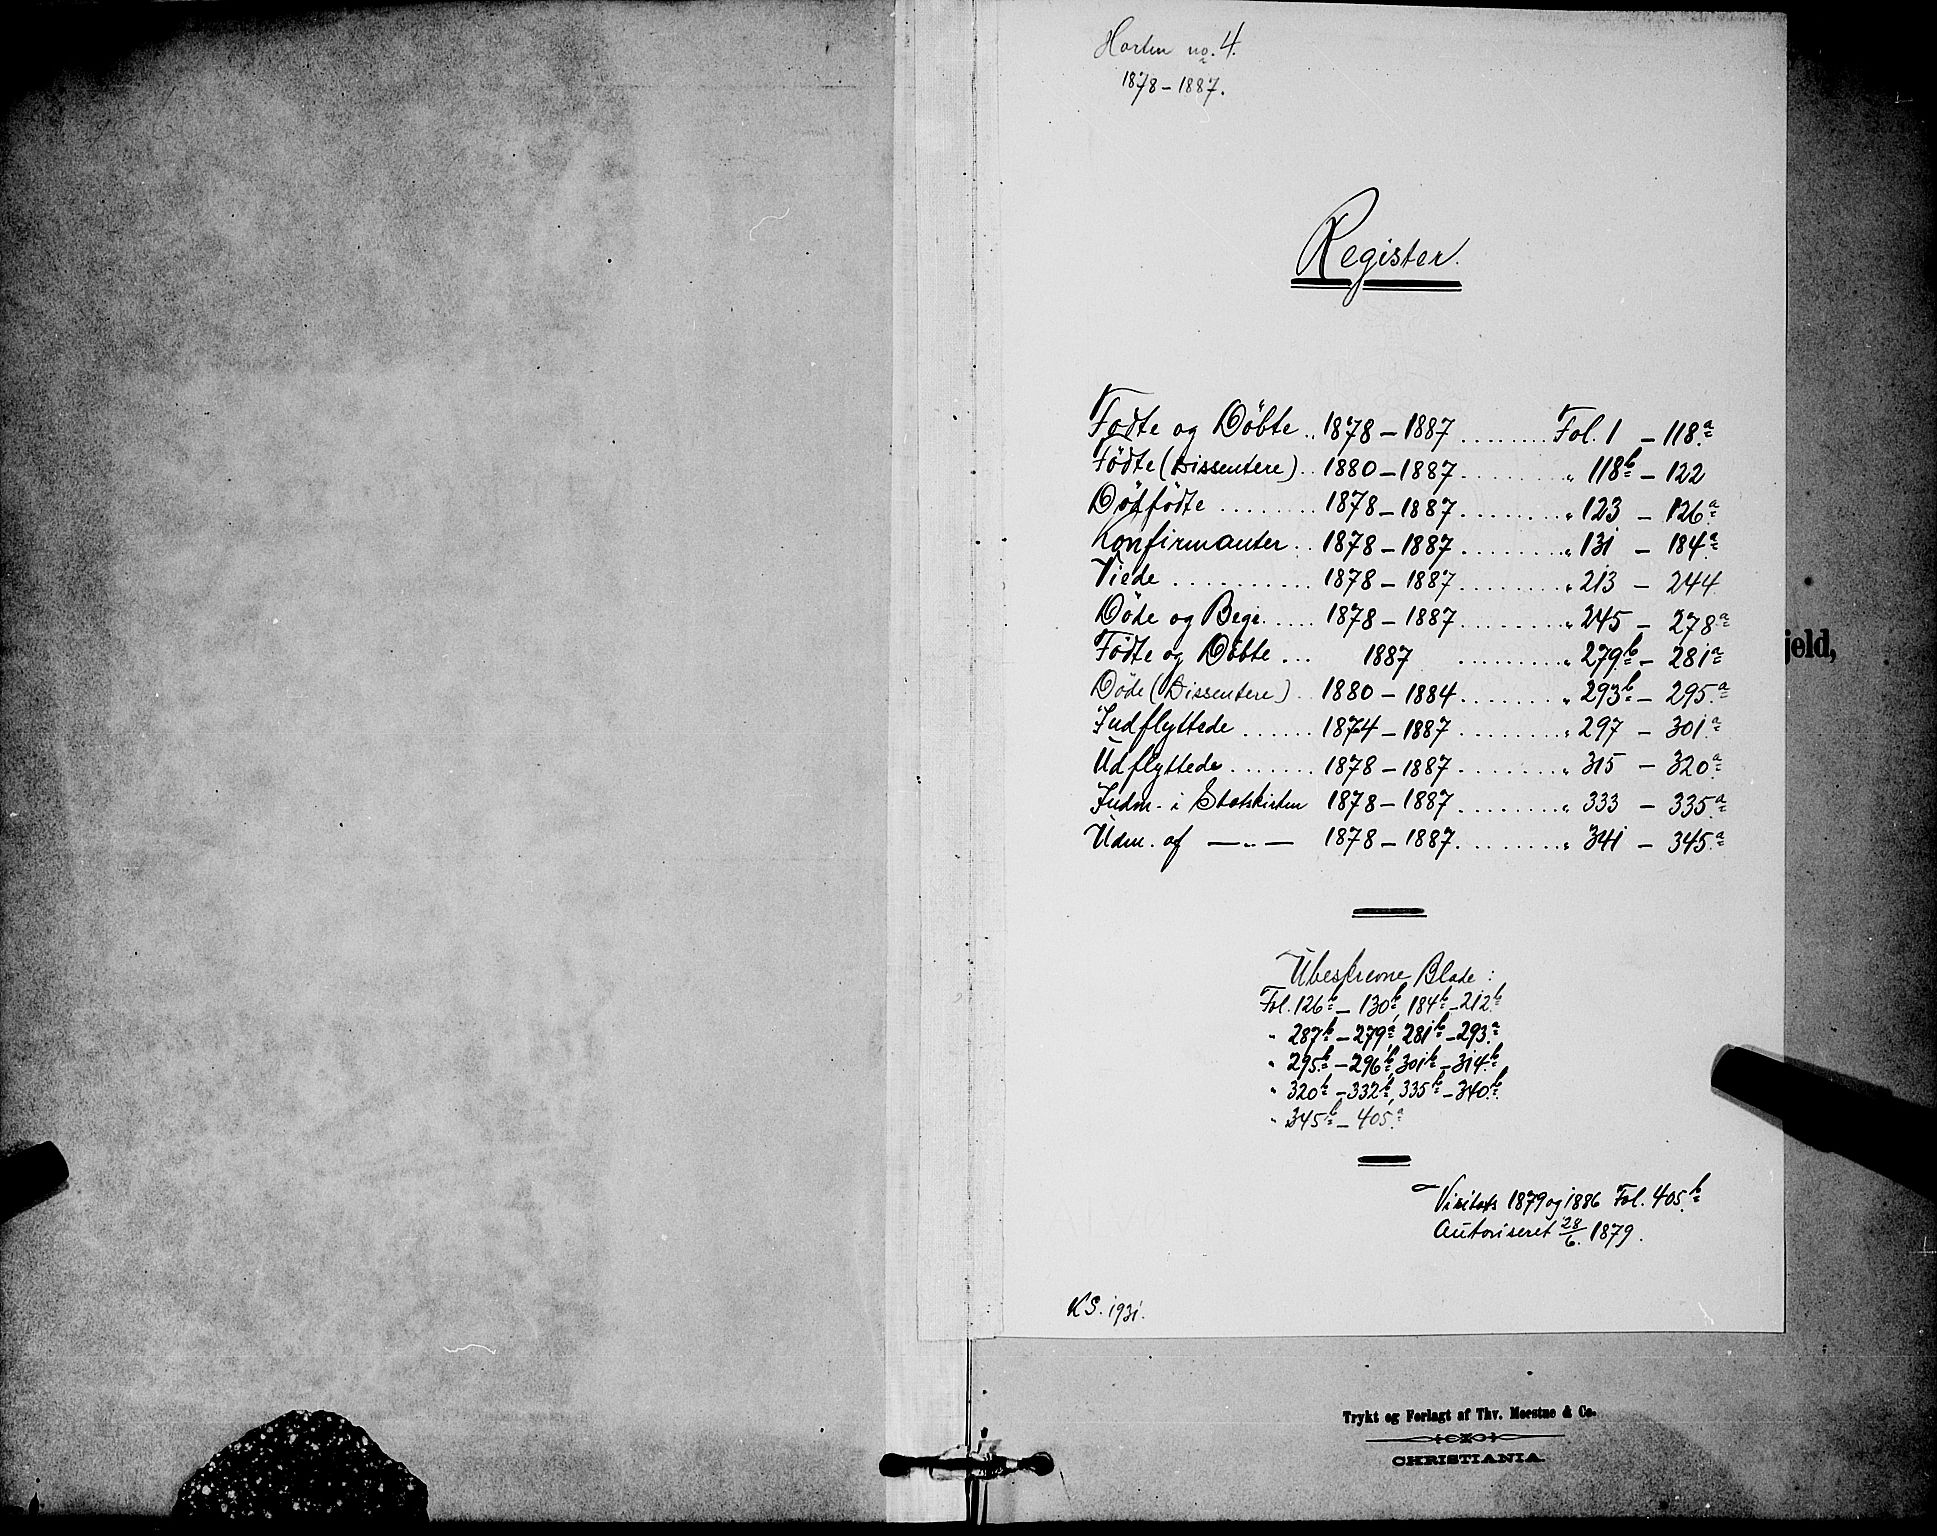 Horten no. 4.
1878-1887.
Register.
Fødte og Döbte .. 1878-1887 ........ Fol. 1 - 118.a
Födte (Dissentere) .. 1880-1887 ......... " 118b - 122
Dötfödte ........ 1878-1887 ........ " 123 - 126a
Konfirmanter .. 1878-1887 ........ " 131 - 184a
Viede .......... 1878-1887 ........ " 213 - 244
Döde og Begr. .... 1878-1887 ........ " 245 - 278a
Födte og Döbte ... 1887 ........ " 279b - 281a
Döde (Dissentere) .. 1880-1884 ........ " 293b - 295a
Indflyttede ...... 1874-1887 ........ " 297 - 301a
Udflyttede ....... 1878-1887 ........ " 315 - 320a
Indm. i Statskirken 1878-1887 ........ " 333 - 335a
Udm. af —"— 1878-1887 ........ " 341 - 345a
Ubeskrevne Blade :
Fol. 126b - 130b, 184b - 212b
" 287b - 279a, 281b - 293a
" 295b - 296b, 301b - 314b
" 320b - 332b, 335b - 340b
" 345b - 405a
Visitats 1879 og 1886 Fol. 405b
Autoriseret 28/6. 1879.
KS. 1931.
jeld,
Trykt og Forlagt af Thv. Moestue & Co.
CHRISTIANIA.